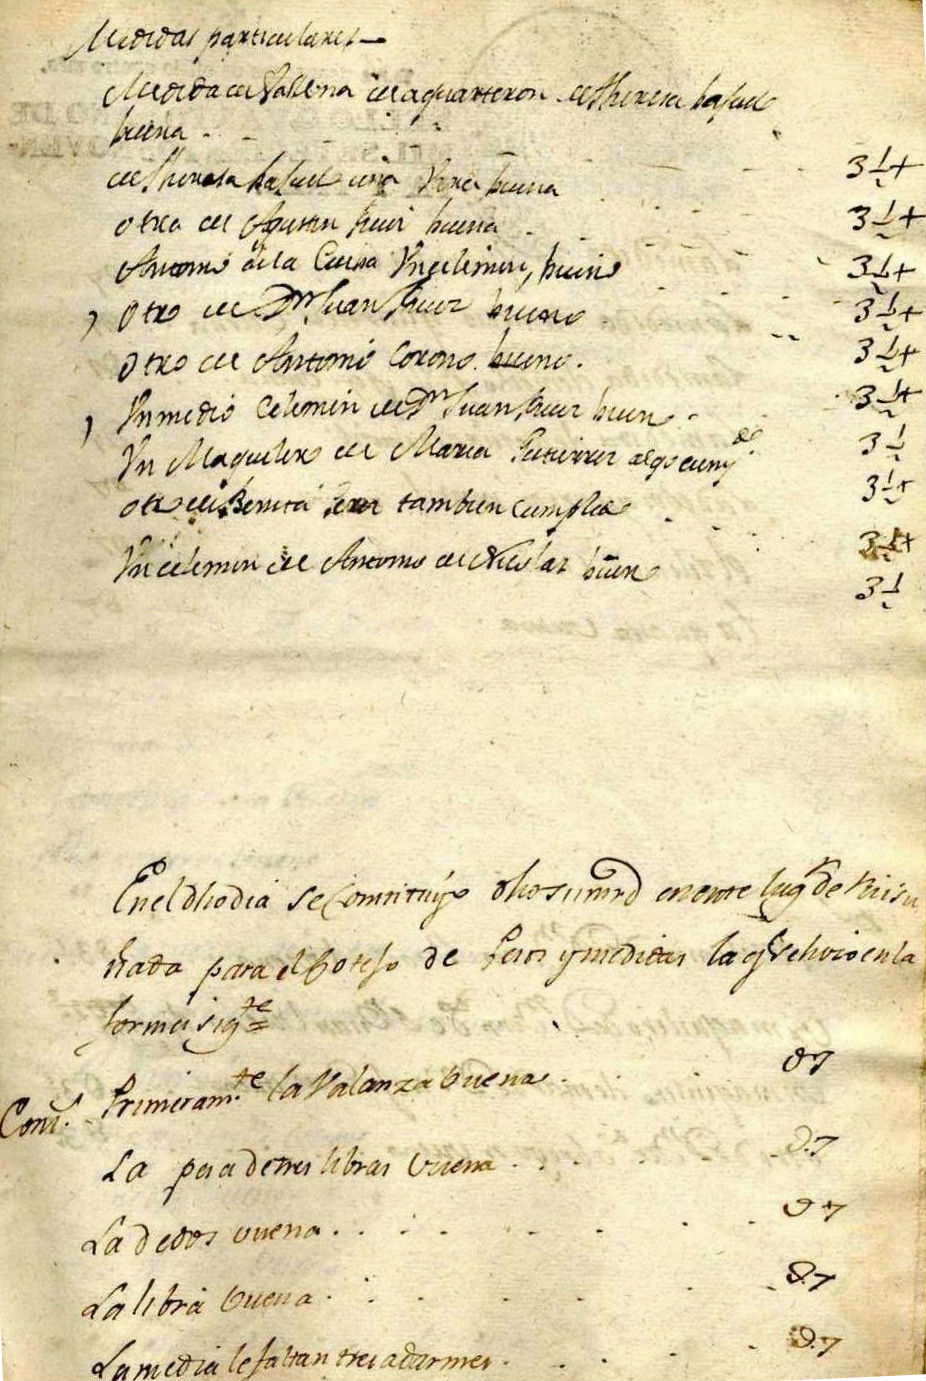 Medidas particulares
Medida de Vallena de a quarteron de Theresa
buena . . 3 ½ +
de Theresa una buena 3 ½ +
otra de Agustin buena 3 ½ +
Antonio de la Cuesta Un celemin, buen 3 ½ +
Otro de Dn Juan bueno 3 ½ +
Otro de Antonio Corono bueno . 3 ½ +
Un medio Celemin de Dn Juan buen 3 ½
Un Maquilero de Maria Gutierrez algo 3 ½ +
otro de Benita tambien cumplido 3 ½ +
Un celemin de Antonio de Nicolas buen 3 ½
En el dho dia se Constituyo dho su mrd en este lugr de
para el Cotejo de Pesos y medidas la q se hizo en la
forma sigte
Primeramte la Valanza buena . 07
La pesa de tres libras buena . . . . 07
La de dos buena . . . . . 07
La libra buena . . . . . 07
La media le faltan tres adarmes . . . . 07